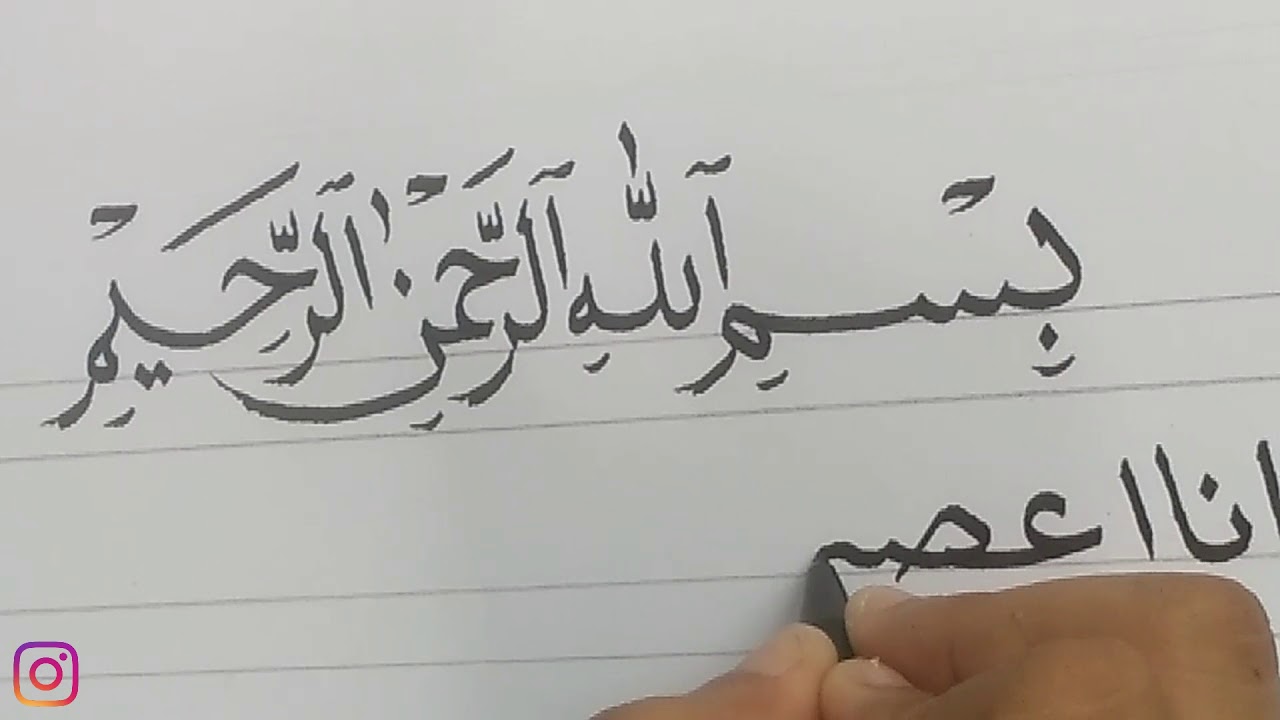 بِسْمِ ٱللّٰهِ ٱلرَّحْمٰنِ ٱلرَّحِيْمِ
انا اعصـ